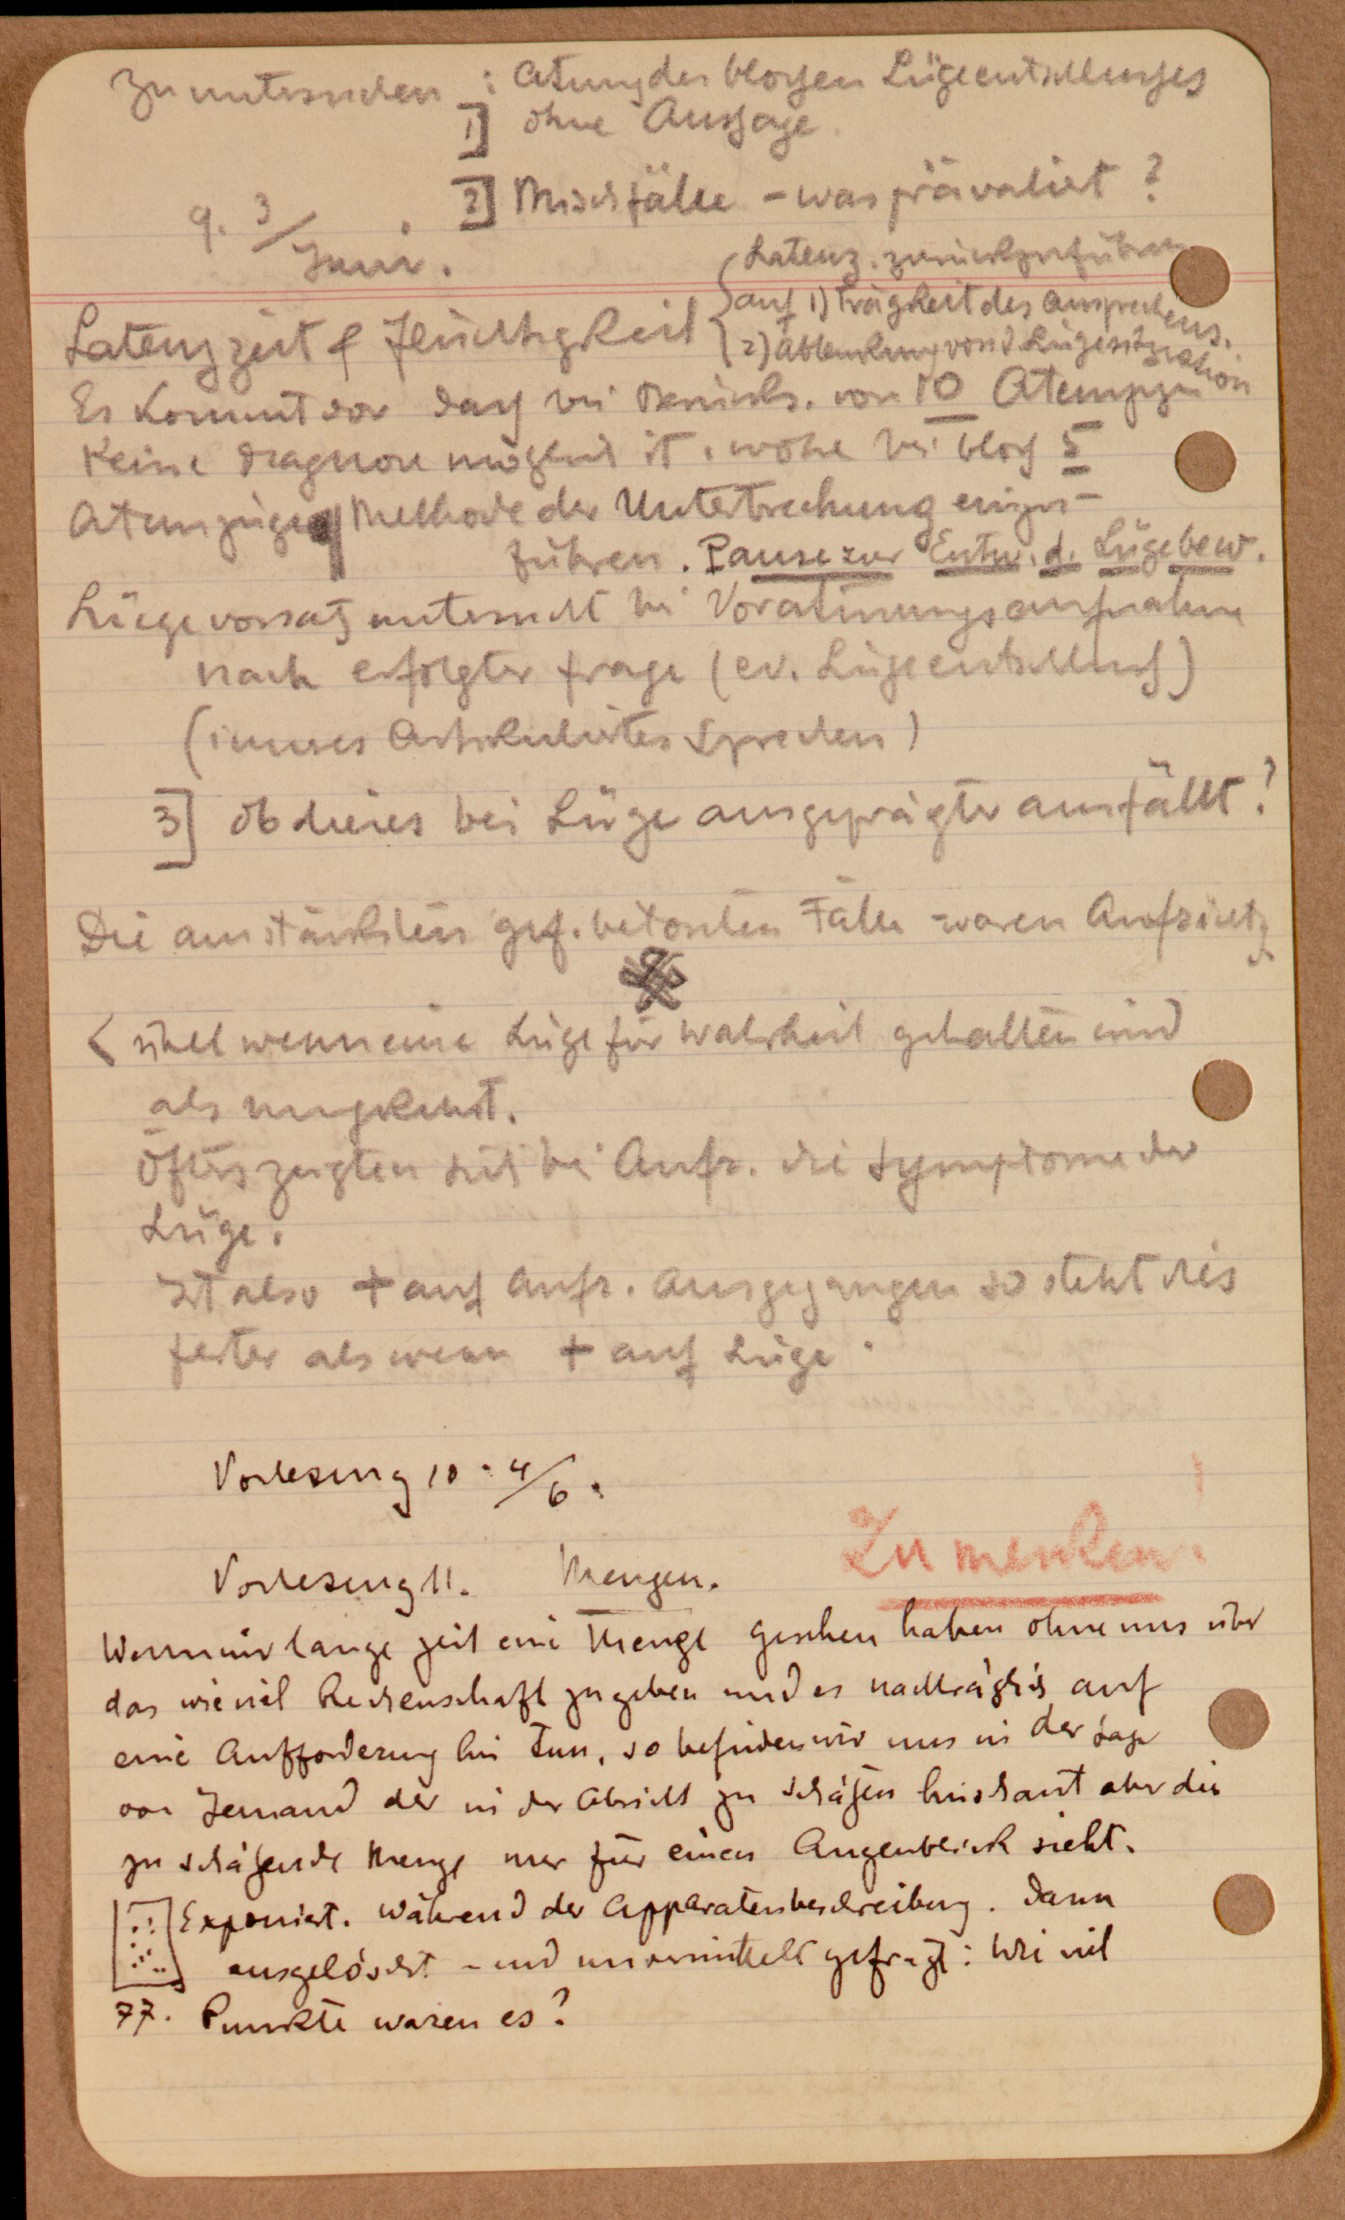 Zu untersuchen : Atmung des blossen Lügeentschlusses
1] ohne Aussage.
2] Mischfälle – was prävaliert ?
9. 3/Juni.
Latenz. zurückzuführen
auf 1) Trägheit des Aussprechens.
2) Ablenkung von d. Lügesituation
Latenzzeit & Flüchtigkeit
Es kommt vor dass bei von 10 Atemzügen
keine Diagnose möglich ist, bei bloss 5
Atemzügen Methode der Unterbrechung einzu-
führen. Pause zur Entw. d. Lügebew.
Lügevorsatz untersucht bei Voratmungsaufnahme
nach erfolgter Frage (ev. Lügeentschluss)
(inneres artikuliertes Sprechen)
3] ob dieses bei Lüge ausgeprägter ausfällt ?
Die am stärksten gef. betonten Fälle waren Aufricht.
wenn eine Lüge für Wahrheit gehalten wird
als umgekehrt.
Öfters zeigten sich bei Aufr. die Symptome der
Lüge.
Ist also + auf Aufr. ausgegangen so steht dies
fester als wenn + auf Lüge.
Vorlesung 10. 4/6.
Zu merken!
Vorlesung 11. Mengen.
Wenn wir lange Zeit eine Menge gesehen haben ohne uns über
das wieviel Rechenschaft zu geben und es nachträglich auf
eine Aufforderung hin tun, so befinden wir uns in der Lage
von Jemand der in der Absicht zu schätzen hinschaut aber die
zu schätzende Menge nur für einen Augenblick sieht.
Exponiert. während der Apparatenbeschreibung. Dann
ausgelöscht – und unvermittelt gefragt: Wie viel
77. Punkte waren es?